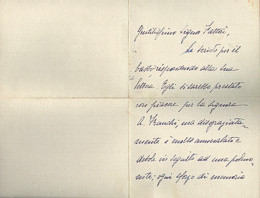 Gentilissimo Signor
Le scrivo per il
rispondendo alla sua
lettera. Egli si sarebbe prestato
con piacere per la Signora
A. Franchi, ma disgraziata-
mente è molto ammalato e
debole in seguito ad una polmo-
nite; ogni sforzo di memoria